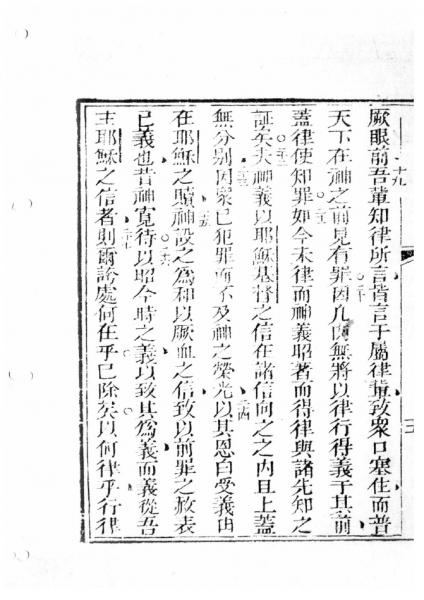 厥眼前吾輩知律所言皆言于屬律輩致衆口塞住而普
十九
天下在神之前見有罪因凡肉無將以律行得義于其前
二十
蓋律使知罪如今未律而神義昭著而得律與諸先知之
二一
証矣夫神義以耶穌基督之信在諸信向之之內且上蓋
二二
無分别因衆已犯罪而不及神之榮光以其恩白受義由
二三
二四
在耶穌之贖神設之為和以厥血之信致以前罪之赦表
二五
已義也昔神寬待以昭今時之義以致其為義而義從吾
二六
主耶穌之信者則爾誇處何在乎已除矣以何律乎行律
二七
三